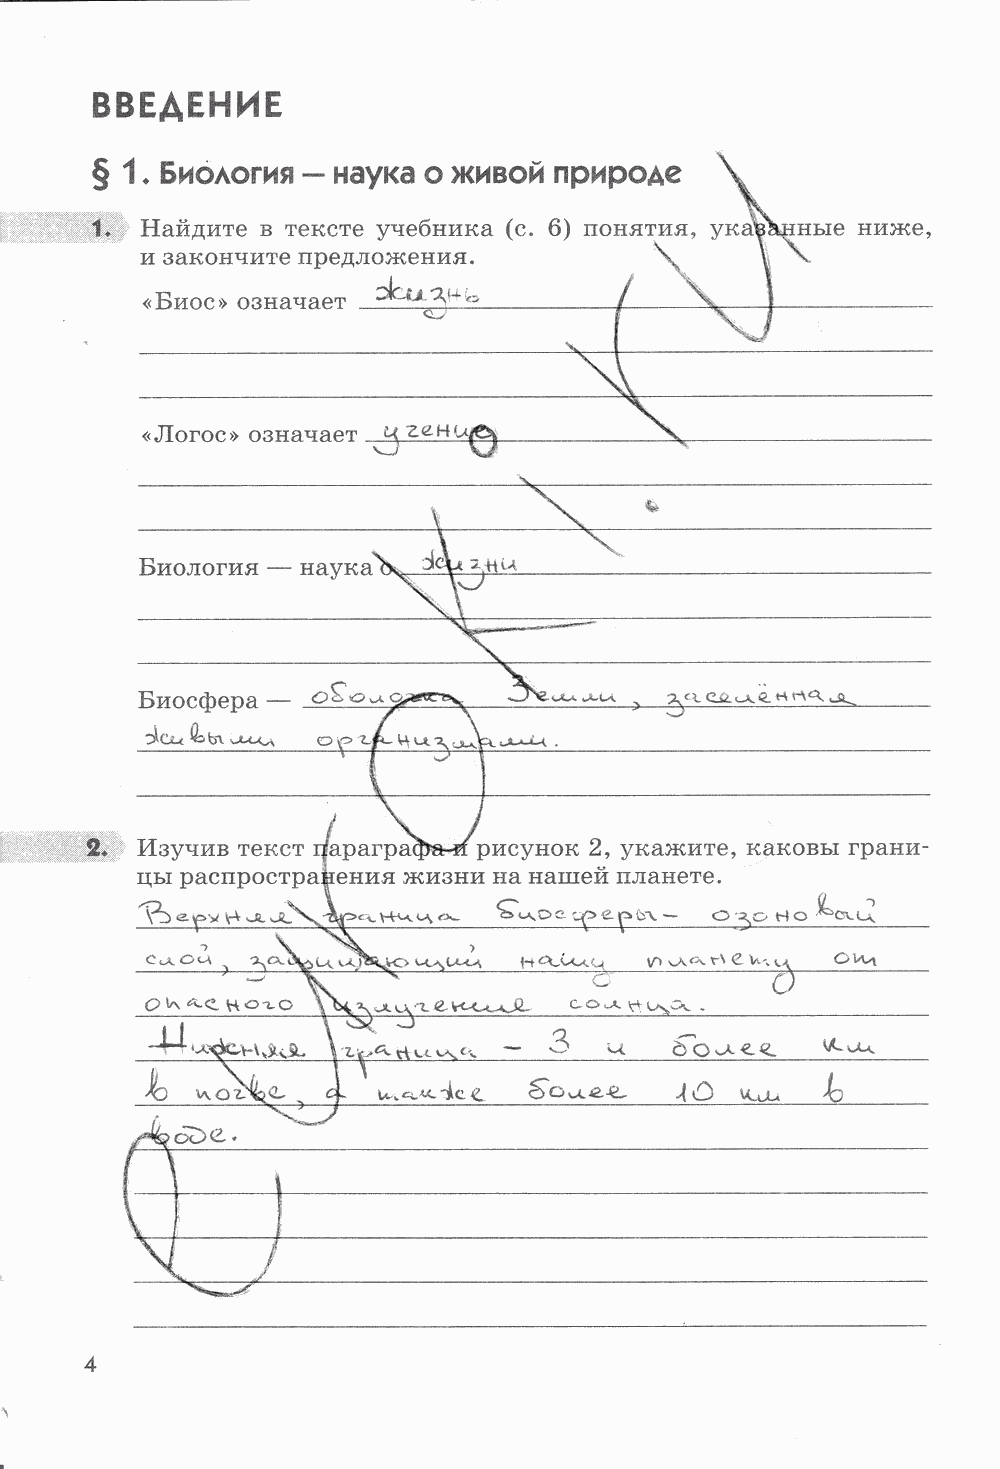 ВВЕДЕНИЕ
§ 1. Биология — наука о живой природе
1. Найдите в тексте учебника (с. 6) понятия, указанные ниже,
и закончите предложения.
«Биос» означает жизнь
«Логос» означает учение
Биология — наука о жизни
Биосфера — оболочка Земли, заселённая
живыми организмами.
2. Изучив текст параграфа и рисунок 2, укажите, каковы грани-
цы распространения жизни на нашей планете.
Верхняя граница биосферы - озоновый
слой, защищающий нашу планету от
опасного излучения солнца.
Нижняя граница - 3 и более км
в почве, а также более 10 км в
воде.
4